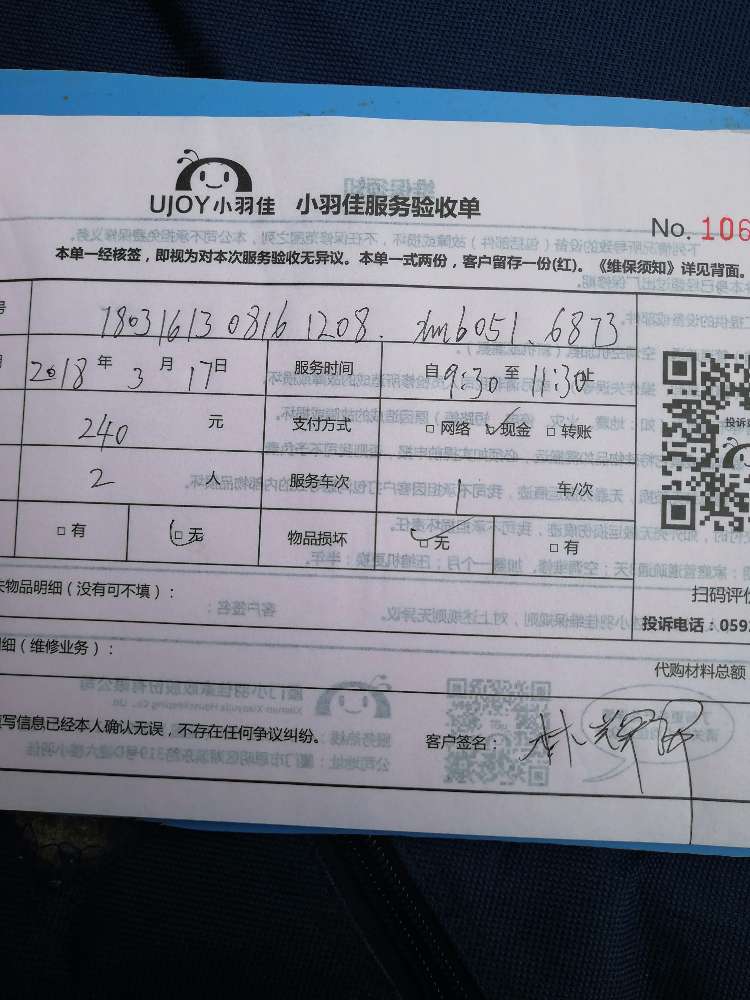 UJOY小羽佳 小羽佳服务验收单
No. 106
本单一经核签，即视为对本次服务验收无异议。本单一式两份，客户留存一份(红)。《维保须知》详见背面。
号 18031613 0816 1208. xm6051.6873
2018 年 3 月 17 日 服务时间 自 9:30 至 11:30 止
240 元 支付方式 □ 网络 ☑ 现金 □ 转账
2 人 服务车次 1 车/次
□ 有 ☑ 无 物品损坏 ☑ 无 □ 有
扫码评价
失物品明细（没有可不填）：
投诉电话：0592
细（维修业务）：
代购材料总额
填写信息已经本人确认无误，不存在任何争议纠纷。 客户签名：